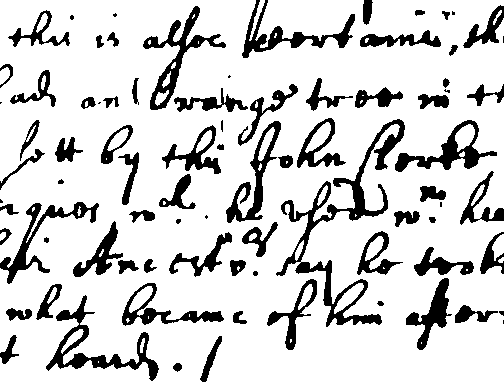 this is allsoe Certaine, th
had an Orange tree in t
sett by this John Clerke
w.ch he used w.n he
Ancest.rs say he tooke
what became of him after
t heard. /